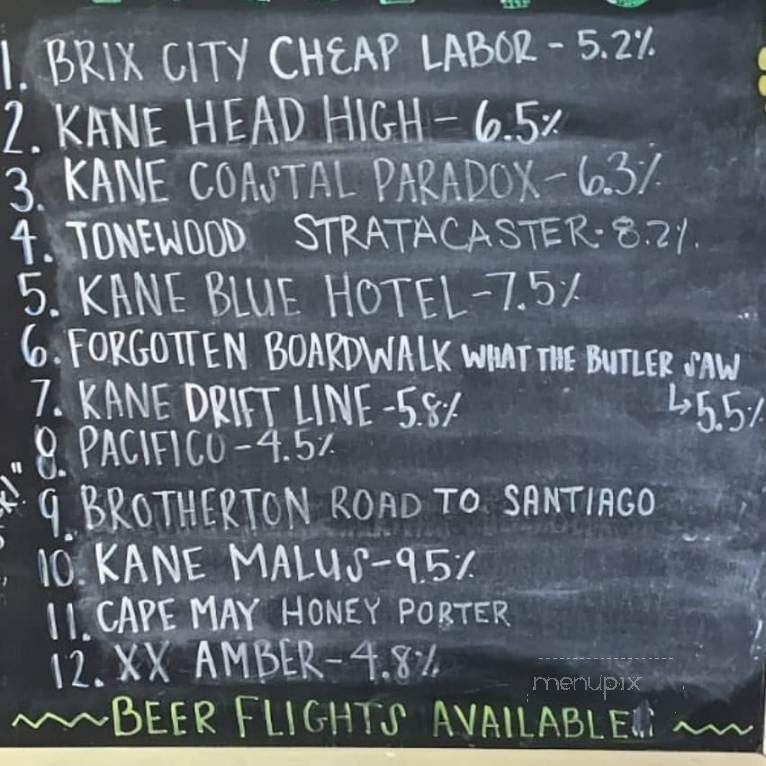 1. BRIX CITY CHEAP LABOR - 5.2%
2. KANE HEAD HIGH - 6.5%
3. KANE COASTAL PARADOX - 6.3%
4. TONEWOOD STRATACASTER - 8.2%
5. KANE BLUE HOTEL - 7.5%
6. FORGOTTEN BOARDWALK WHAT THE BUTLER SAW
↳ 5.5%
7. KANE DRIFT LINE - 5.8%
8. PACIFICO - 4.5%
9. BROTHERTON ROAD TO SANTIAGO
10. KANE MALUS - 9.5%
11. CAPE MAY HONEY PORTER
12. XX AMBER - 4.8%
menupix
~ BEER FLIGHTS AVAILABLE ~